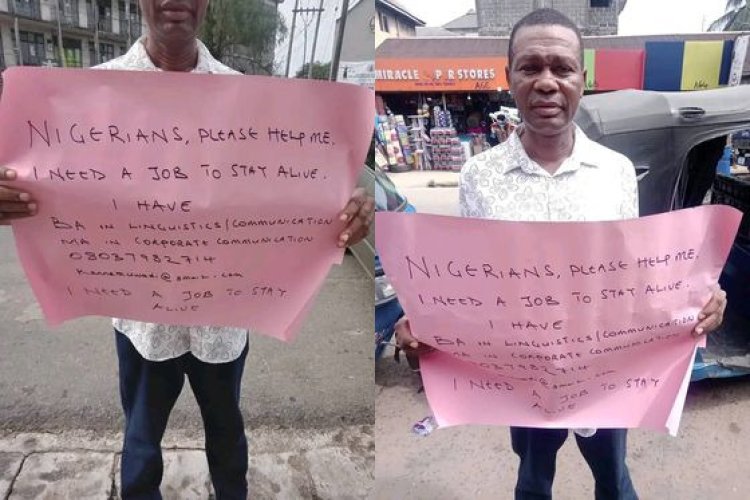 NIGERIANS, PLEASE HELP ME.
I NEED A JOB TO STAY ALIVE.
I HAVE
BA IN LINGUISTICS/COMMUNICATION
MA IN CORPORATE COMMUNICATION
08037982714
I NEED A JOB TO STAY
ALIVE
MIRACLE STORES
NIGERIANS, PLEASE HELP ME.
I NEED A JOB TO STAY ALIVE.
I HAVE
BA IN LINGUISTICS/COMMUNICATION
MA IN CORPORATE COMMUNICATION
I NEED A JOB TO STAY
ALIVE